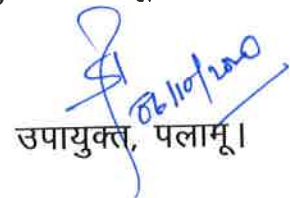 06/10/2020
उपायुक्त, पलामू।